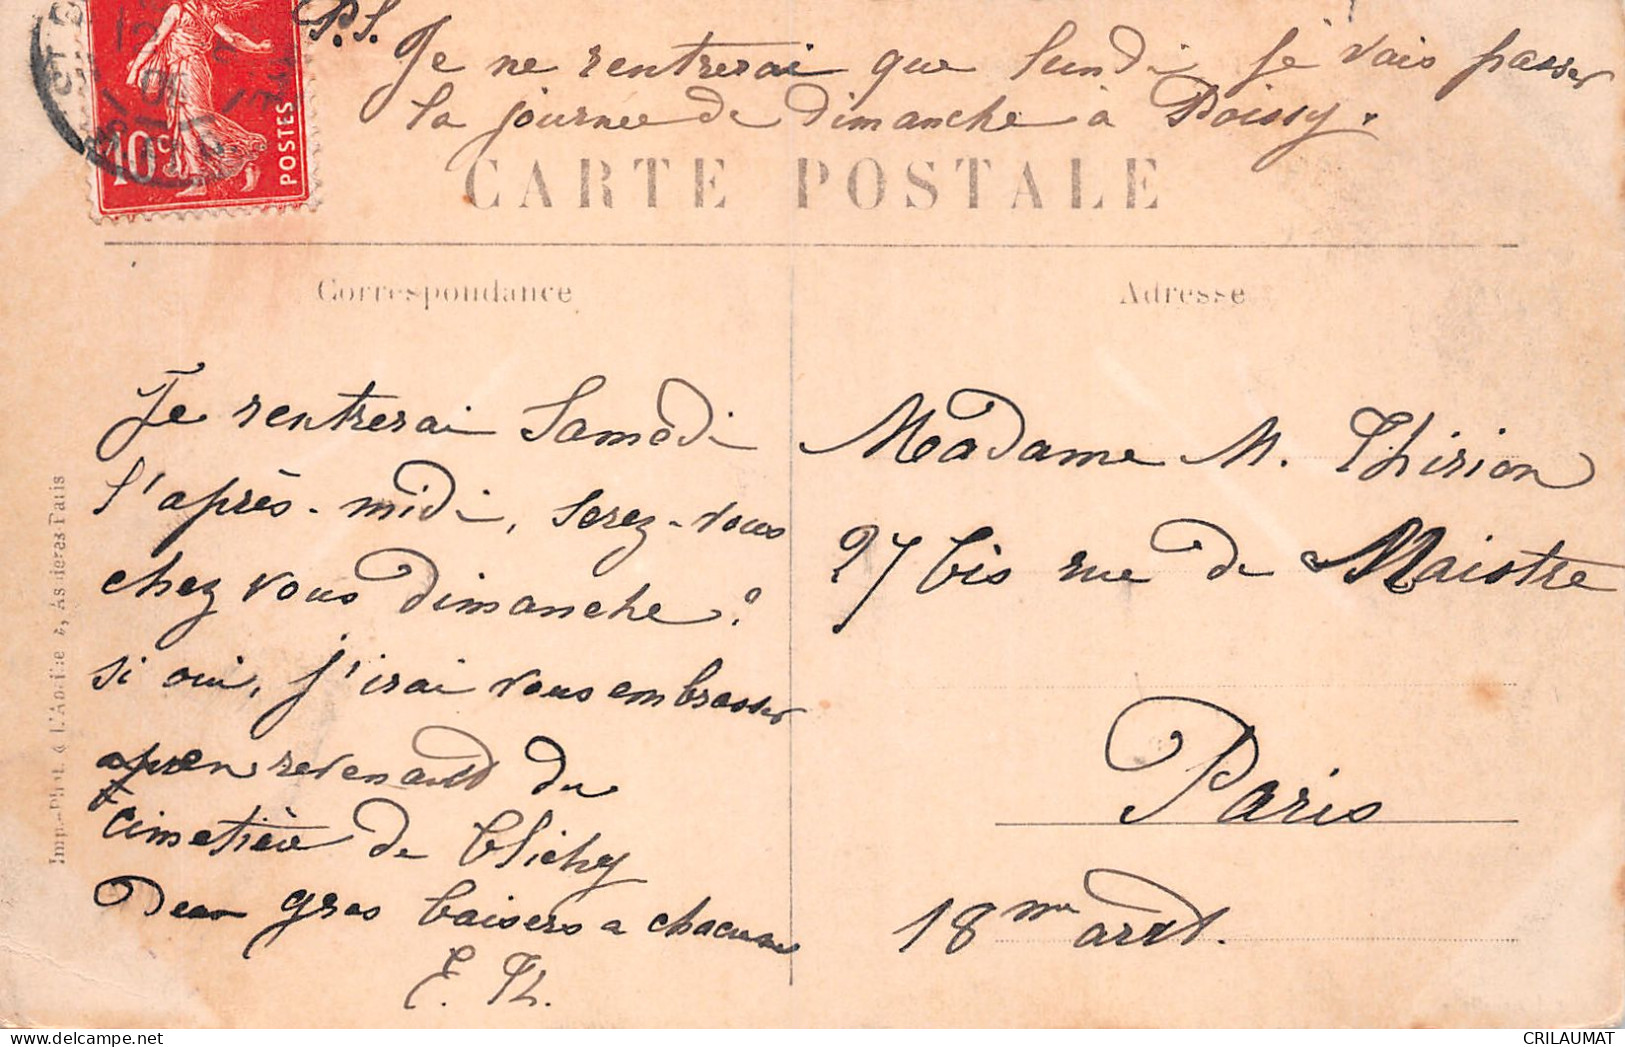 P.S. Je ne rentrerai que lundi je vais passer
la journée de dimanche à Poissy.
10c
POSTES
CARTE POSTALE
Correspondance
Je rentrerai Samedi
l'après-midi, serez-vous
chez vous dimanche?
si oui, j'irai vous embrasser
en revenant du
cimetière de Clichy
Deux gros baisers a chacune
E. Th.
Adresse
Madame M. Thirion
27 bis rue de Maistre
Paris
18me arrdt.
Imp.-Phot. Asnières-Paris
CRILAUMAT